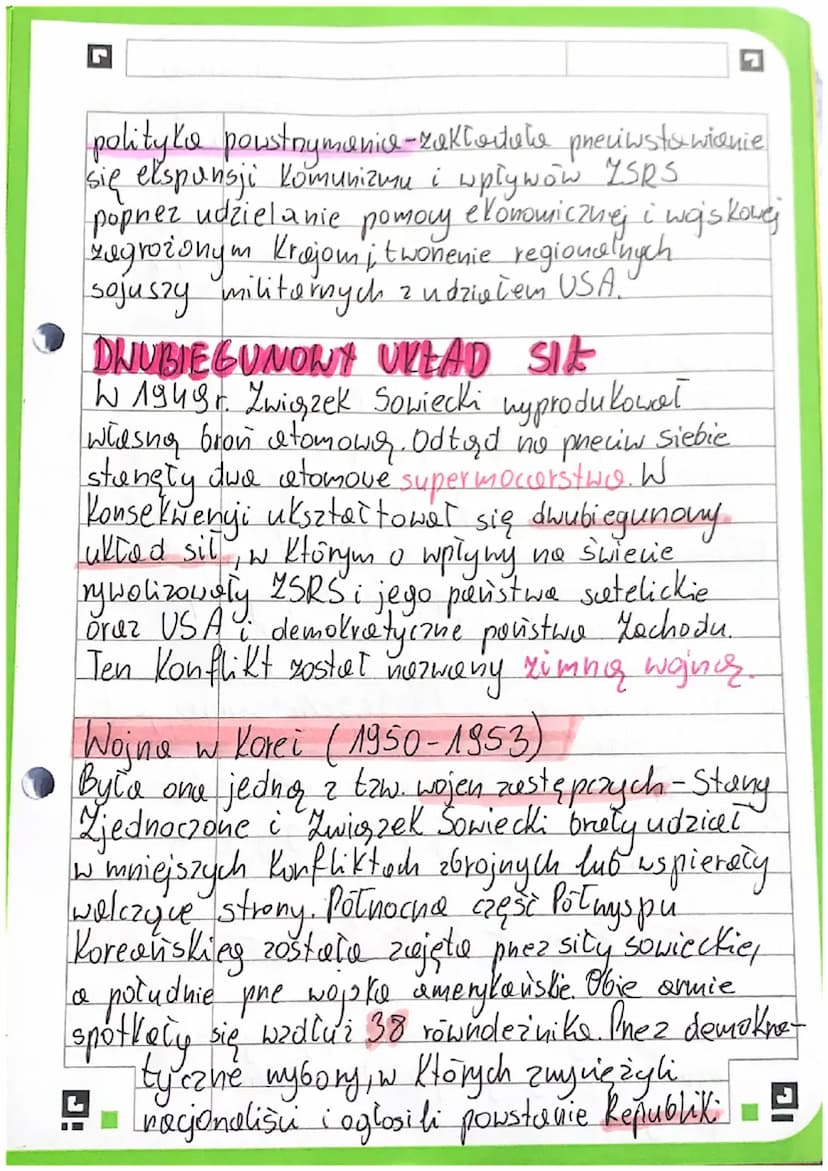 polityka powstrzymania-zakładała przeciwstawianie
się ekspansji komunizmu i wpływów ZSRS
poprzez udzielanie pomocy ekonomicznej i wojskowej
zagrożonym krajom i tworzenie regionalnych
sojuszy militarnych z udziałem USA.
DWUBIEGUNOWY UKŁAD SIŁ
W 1949r. Związek Sowiecki wyprodukował
własną broń atomową. Odtąd na przeciw siebie
stanęły dwa atomowe supermocarstwa. W
konsekwencji ukształtował się dwubiegunowy
układ sił, w którym o wpływy na świecie
rywalizowały ZSRS i jego państwa satelickie
oraz USA i demokratyczne państwa Zachodu.
Ten konflikt został nazwany zimną wojną.
Wojna w Korei (1950-1953)
Była ona jedną z tzw. wojen zastępczych - Stany
Zjednoczone i Związek Sowiecki brały udział
w mniejszych konfliktach zbrojnych lub wspierały
walczące strony. Północna część Półwyspu
Koreańskieg została zajęta przez siły sowieckie,
a południe prze wojska amerykańskie. Obie armie
spotkały się wzdłuż 38 równoleżnika. Przez demokra-
tyczne wybory, w których zwyciężyli
nacjonaliści i ogłosili powstanie Republiki